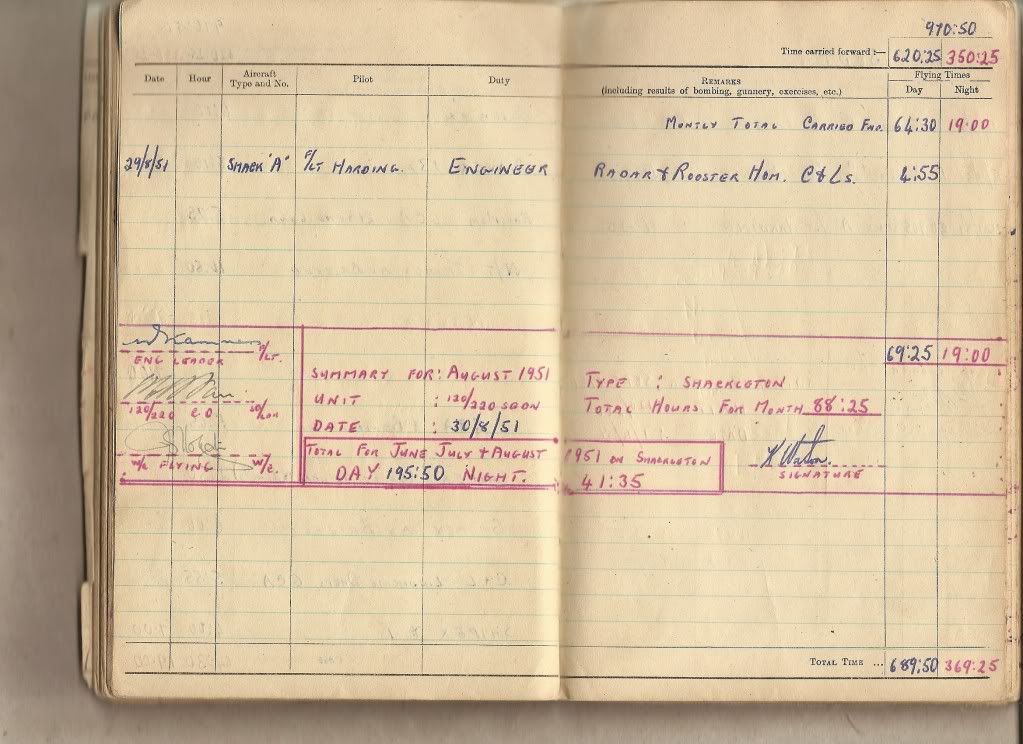 970:50
Time carried forward :— 620:25 350:25
Date Hour Aircraft Type and No. Pilot Duty REMARKS (including results of bombing, gunnery, exercises, etc.) Flying Times Day Night
MONTLY TOTAL CARRIED FWD. 64:30 19:00
29/8/51 SHACK 'A' F/LT HARDING. ENGINEER RADAR & ROOSTER HOM. C & Ls. 4:55
69:25 19:00
F/LT.
ENG LEADER
120/220 C.O
W/C FLYING W/C.
SUMMARY FOR: AUGUST 1951
UNIT : 120/220 SQDN
DATE : 30/8/51
TYPE : SHACKLETON
TOTAL HOURS FOR MONTH 88:25
TOTAL FOR JUNE JULY & AUGUST 1951 ON SHACKLETON
DAY 195:50 NIGHT. 41:35
K Watson.
SIGNATURE
TOTAL TIME ... 689:50 369:25